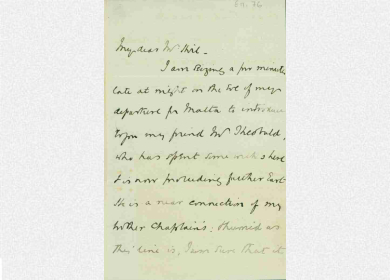 My dear Mr
I am seizing a few minutes
late at night on the Eve of my
departure for Malta to introduce
to you my friend Mr Theobald,
who has spent some weeks here
& is now proceeding further East
He is a near connection of my
brother Chaplain's:
line is, I am sure that it